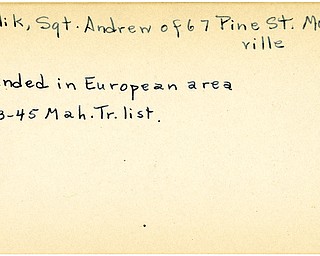 lik, Sgt. Andrew of 67 Pine St. Mc
ville
nded in European area
3-45 Mah. Tr. list.